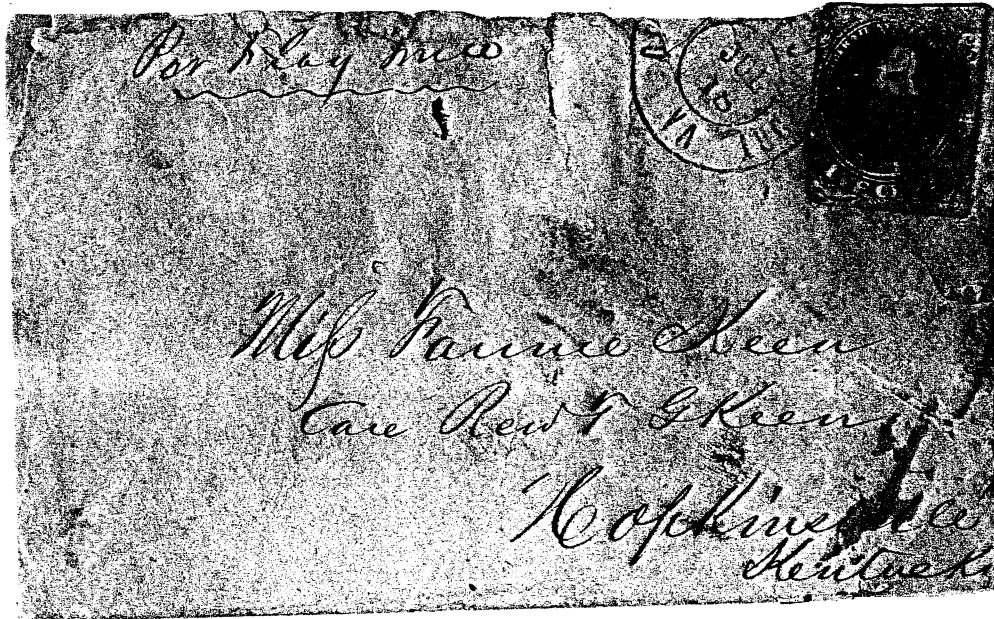 Per Flag truce
VA
Miss Fannie Keen
Care Rev T G Keen
Hopkinsville
Kentuck